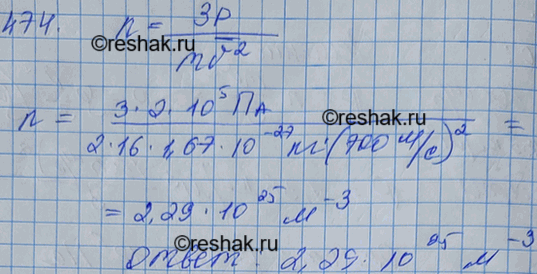 474. n = 3p / m v̄²
©reshak.ru
©reshak.ru
n = 3·2·10⁵ Па / 2·16·1,67·10⁻²⁷ кг·(700 м/с)² =
= 2,29·10²⁵ м⁻³
©reshak.ru
Ответ: 2,29·10²⁵ м⁻³